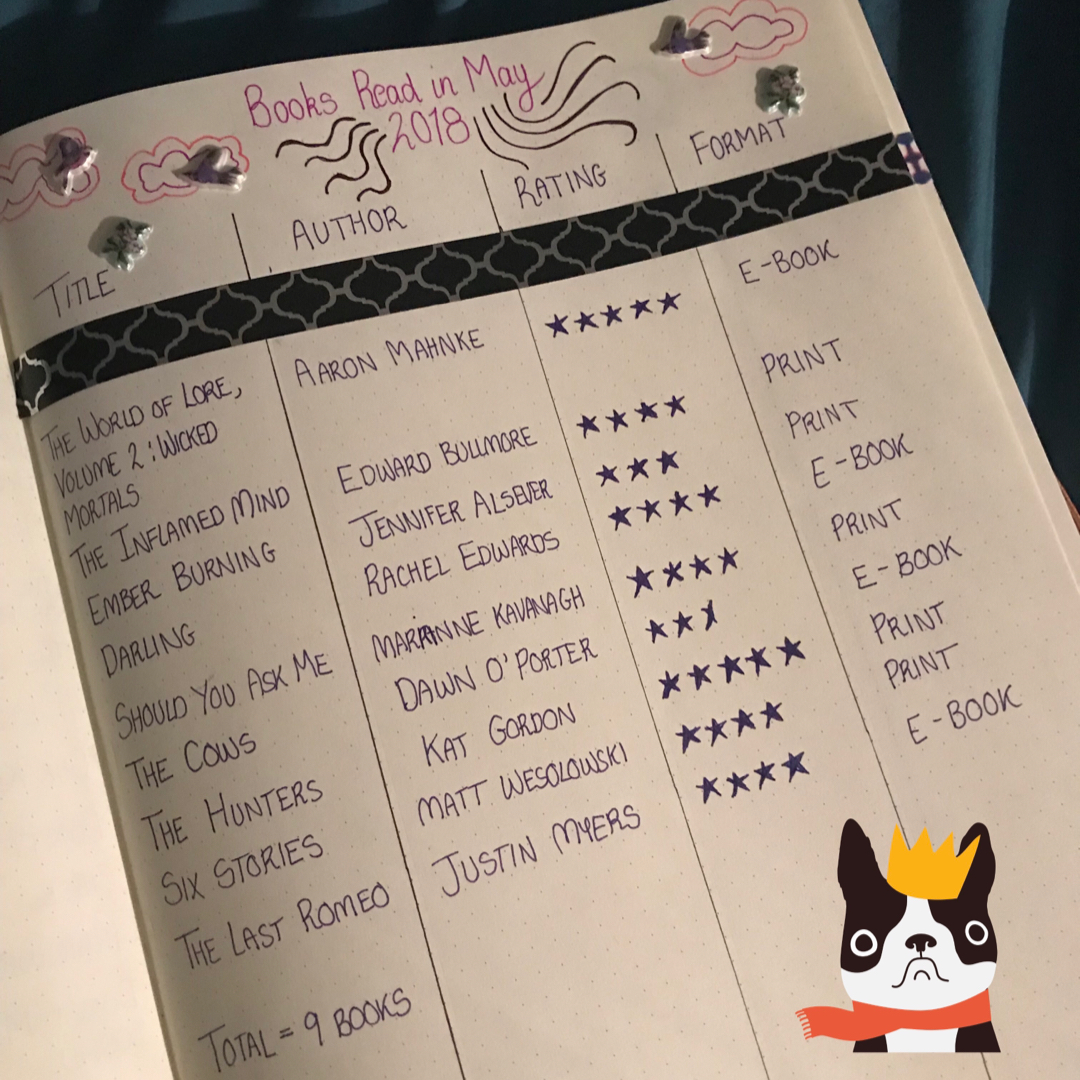 Books Read in May
2018
TITLE AUTHOR RATING FORMAT
THE WORLD OF LORE, AARON MAHNKE ★★★★★ E-BOOK
VOLUME 2: WICKED
MORTALS
THE INFLAMED MIND EDWARD BULLMORE ★★★★ PRINT
EMBER BURNING JENNIFER ALSEVER ★★★ PRINT
DARLING RACHEL EDWARDS ★★★★ E-BOOK
SHOULD YOU ASK ME MARIANNE KAVANAGH ★★★★ PRINT
THE COWS DAWN O'PORTER ★★⯨ E-BOOK
THE HUNTERS KAT GORDON ★★★★★ PRINT
SIX STORIES MATT WESOLOWSKI ★★★★ PRINT
THE LAST ROMEO JUSTIN MYERS ★★★★ E-BOOK
TOTAL = 9 BOOKS